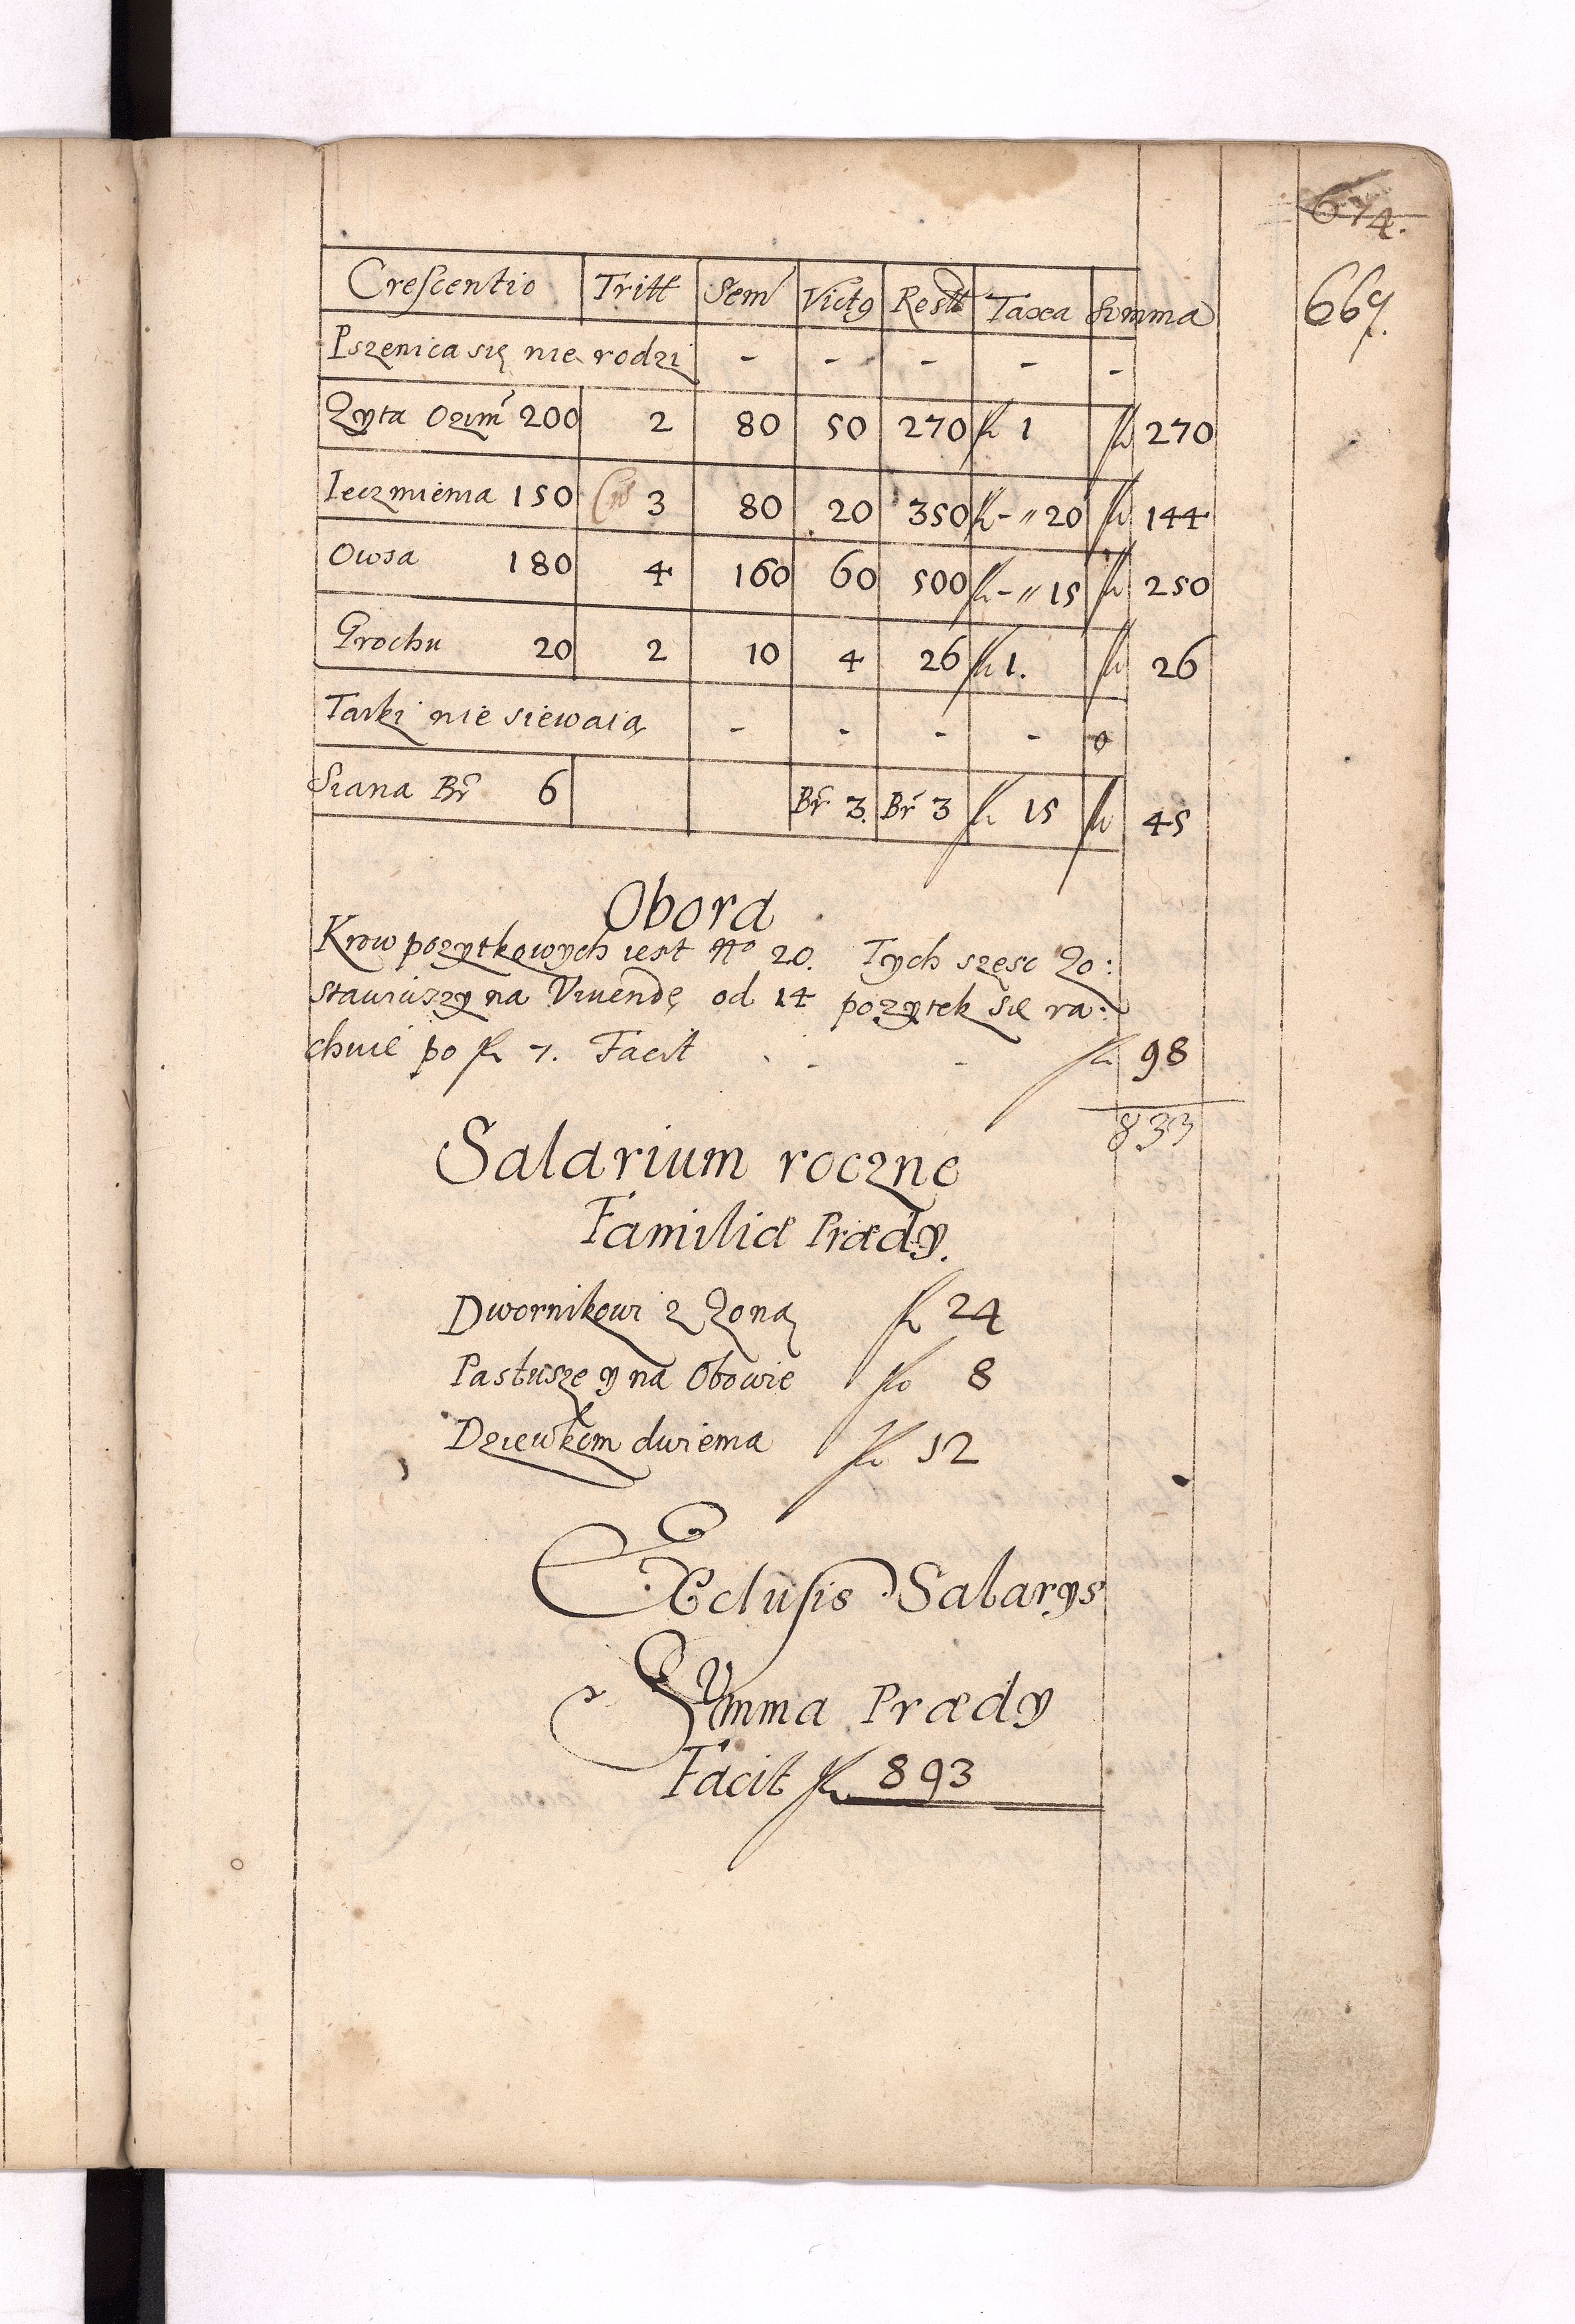 674.
669.
Crescentio Tritt Sem Victg Restt Taxa Summa
Pszenica się nie rodzi - - - - -
Zyta Ozim 200 2 80 50 270 fl 1 fl 270
Ieczmienia 150 3 80 20 350 fl - " 20 fl 144
Owsa 180 4 160 60 500 fl - " 15 fl 250
Grochu 20 2 10 4 26 fl 1. fl 26
Tarki nie siewaią - - - - 0
Siana Br 6 Br 3. Br 3 fl 15 fl 45
Obora
Krow pozytkowych iest No 20. Tych szesc Zo:
stawiwszy na Viuendę od 14 pozytek się ra:
chuie po fl 7. Facit - - fl 98
833
Salarium roczne
Familiæ Prædy.
Dwornikowi z Zoną fl 24
Pastusze y na Obowie flo 8
Dziewkom dwiema fl 12
Exclusis Salarys
Summa Prædy
Facit fl 893